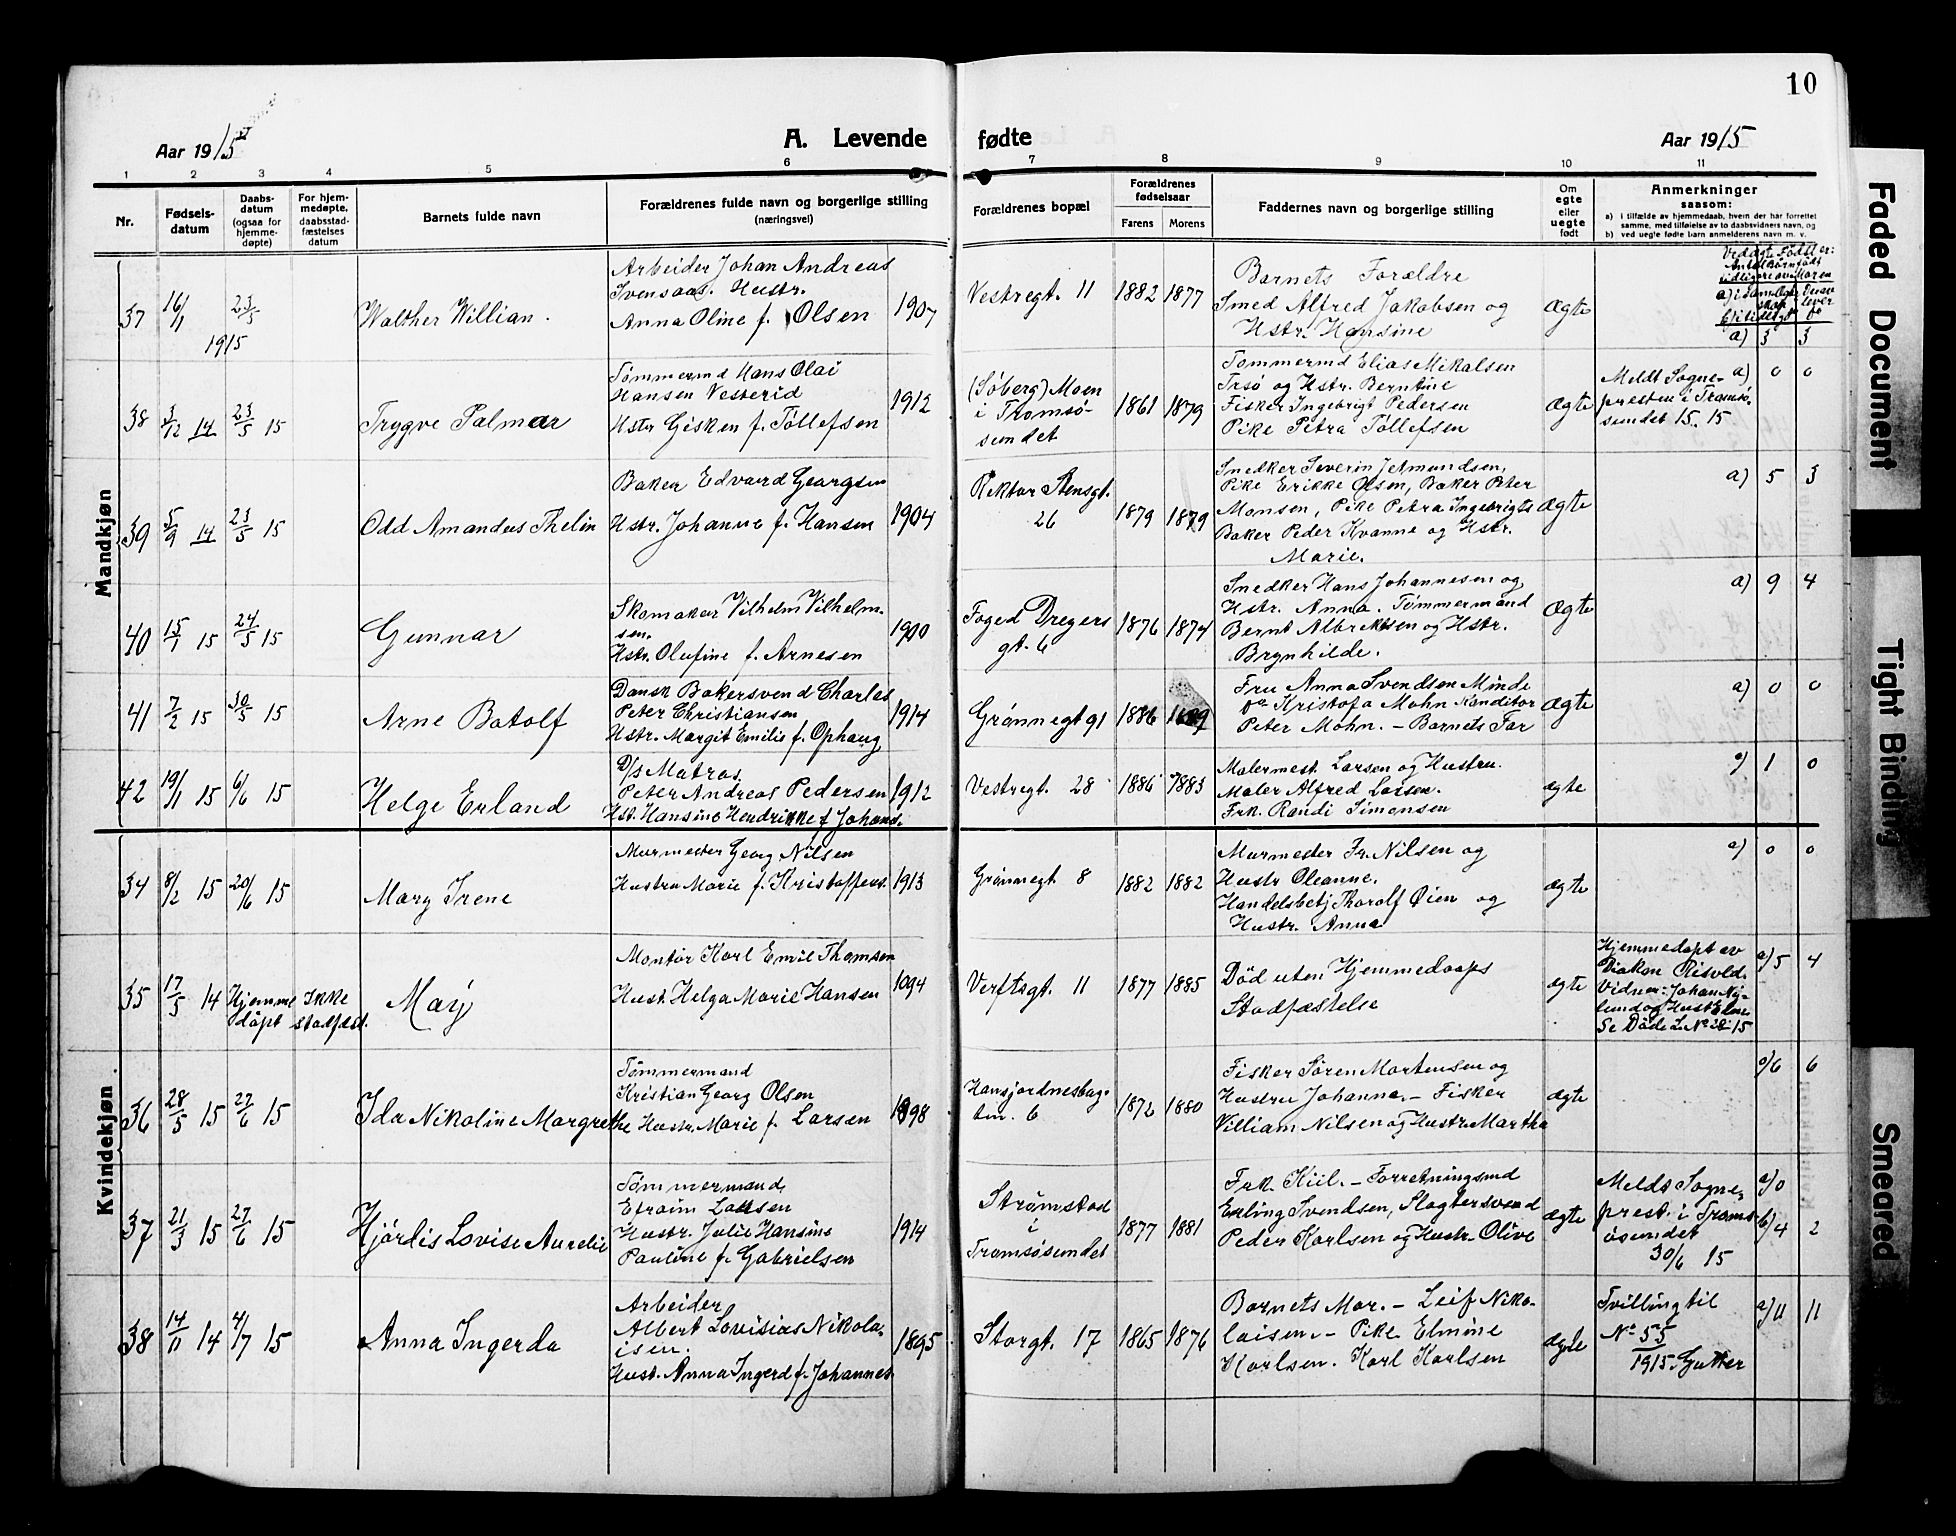 10
Aar 1915
A. Levende
fødte
Aar 1915
1 2 3 4 5 6 7 8 9 10 11
Nr.
Fødsels-
datum
Daabs-
datum
(ogsaa for
hjemme-
døpte)
For hjem-
medøpte,
daabsstad-
fæstelses
datum
Barnets fulde navn
Forældrenes fulde navn og borgerlige stilling
(næringsvei)
Forældrenes bopæl
Forældrenes
fødselsaar
Farens Morens
Faddernes navn og borgerlige stilling
Om
egte
eller
uegte
født
Anmerkninger
saasom:
a) i tilfælde av hjemmedaab, hvem der har forrettet
samme, med tilføielse av to daabsvidners navn, og
b) ved uegte fødte barn anmelderens navn m. v.
Mandkjøn
37 16/1 23/5
1915
Walther Willian.
Arbeider Johan Andreas
Svensaas. Hustr.
Anna Oline f. Olsen
1907
Vestregt. 11
1882 1877
Barnets Forældre
Smed Alfred Jakobsen og
Hstr. Hansine
Ægte
a) 3 3
38 3/12 14 23/5 15
Trygve Palmar
Tømmermd Hans Olai
Hansen Vesterid
Hstr Gisken f. Tøllefsen
1912
(Søberg) Moen
i Tromsø-
sundet
1861 1879
Tømmermd Elias Mikalsen
Trsø og Hstr. Berntine
Fisker Ingebrigt Pedersen
Pike Petra Tøllefsen
Ægte
Meldt Sogne-
presten i Tromsø-
sundet 15. 15
a) 0 0
39 5/9 14 23/5 15
Odd Amandus Thelin
Baker Edvard Georgsen
Hstr. Johanne f. Hansen
1904
Rektor Stensgt.
26
1879 1879
Snedker Severin Jetmundsen,
Pike Erikke Olsen, Baker Peter
Monsen, Pike Petra Ingebrigts
Baker Peder Kvanne og Hstr.
Marie.
Ægte
a) 5 3
40 15/1 15 24/5 15
Gunnar
Skomaker Vilhelm Vilhelm-
sen.
Hstr. Olufine f. Arnesen
1900
Foged Dreyers
gt. 6
1876 1874
Snedker Hans Johannesen og
Hstr. Anna. Tømmermand
Bernt Albrektsen og Hstr.
Brynhilde.
Ægte
a) 9 4
41 7/2 15 30/5 15
Arne Botolf
Dansk Bakersvend Charles
Peter Christiansen
Hstr. Margit Emilie f. Ophaug
1914
Grønnegt 91
1886
Fru Anna Svendsen Minde
Kristofa Mohn Konditor
Peter Mohn. - Barnets Far
Ægte
a) 0 0
42 19/11 15 6/6 15
Helge Erland
D/s Matros.
Peter Andreas Pedersen
Hst. Hansine Hendrikke f Johans.
1912
Vestregt. 28
1886 1883
Malermest. Larsen og Hustru.
Maler Alfred Larsen.
Frk. Randi Simonsen
ægte
a) 1 0
Kvindekjøn
34 8/2 15 20/6 15
Mary Irene
Murmester Georg Nilsen
Hustru Marie f. Kristoffers.
1913
Grønnegt 8
1882 1882
Murmester Fr. Nilsen og
Hustr Oleanne.
Handelsbetj Thorolf Øien og
Hustr. Anna
ægte
a) 0 0
35 17/5 14
Hjemme
døpt
Ikke
stadfæst.
May
Montør Karl Emil Thomsen
Hust. Helga Marie Hansen
Verftsgt. 11
1877 1885
Død uten Hjemmedaaps
Stadfæstelse
ægte
Hjemmedøpt av
Diakon Risvold.
Vidner: Johan Ny-
lund og Hust Elen.
Se Døde L. No 15
a) 5 4
36 28/5 15 27/6 15
Ida Nikoline Margrethe
Tømmermand
Kristian Georg Olsen
Hustr. Marie f. Larsen
1898
Hansjordnesbug-
ten. 6
1872 1880
Fisker Søren Mortensen og
Hustru Johanna. - Fisker
Villiam Nilsen og Hustr. Martha
ægte
a) 6 6
37 21/3 15 27/6 15
Hjørdis Lovise Aurelie
Tømmermand
Efraim Larsen
Hustr. Julie Hansine
Pauline f. Gabrielsen
1914
Strømstad
i
Tromsøsundet
1877 1881
Frk. Kiil. - Forretningsmd
Erling Svendsen, Slagtersvend
Peder Karlsen og Hustr. Olive
Ægte
Meldt Sogne-
prest. i Troms-
øsundet
30/6 15
a) 0
b) 4 2
38 14/11 14 4/7 15
Anna Ingerda
Arbeider
Albert Lovisias Nikola-
isen.
Hust. Anna Ingerd f. Johannes.
1895
Storgt. 17
1865 1876
Barnets Mor. - Leif Niko-
laisen. - Pike Elmine
Karlsen. Karl Karlsen
ægte
Tvilling til
No 55
1915. Gutter
a) 11 11
Faded Document
Tight Binding
Smeared